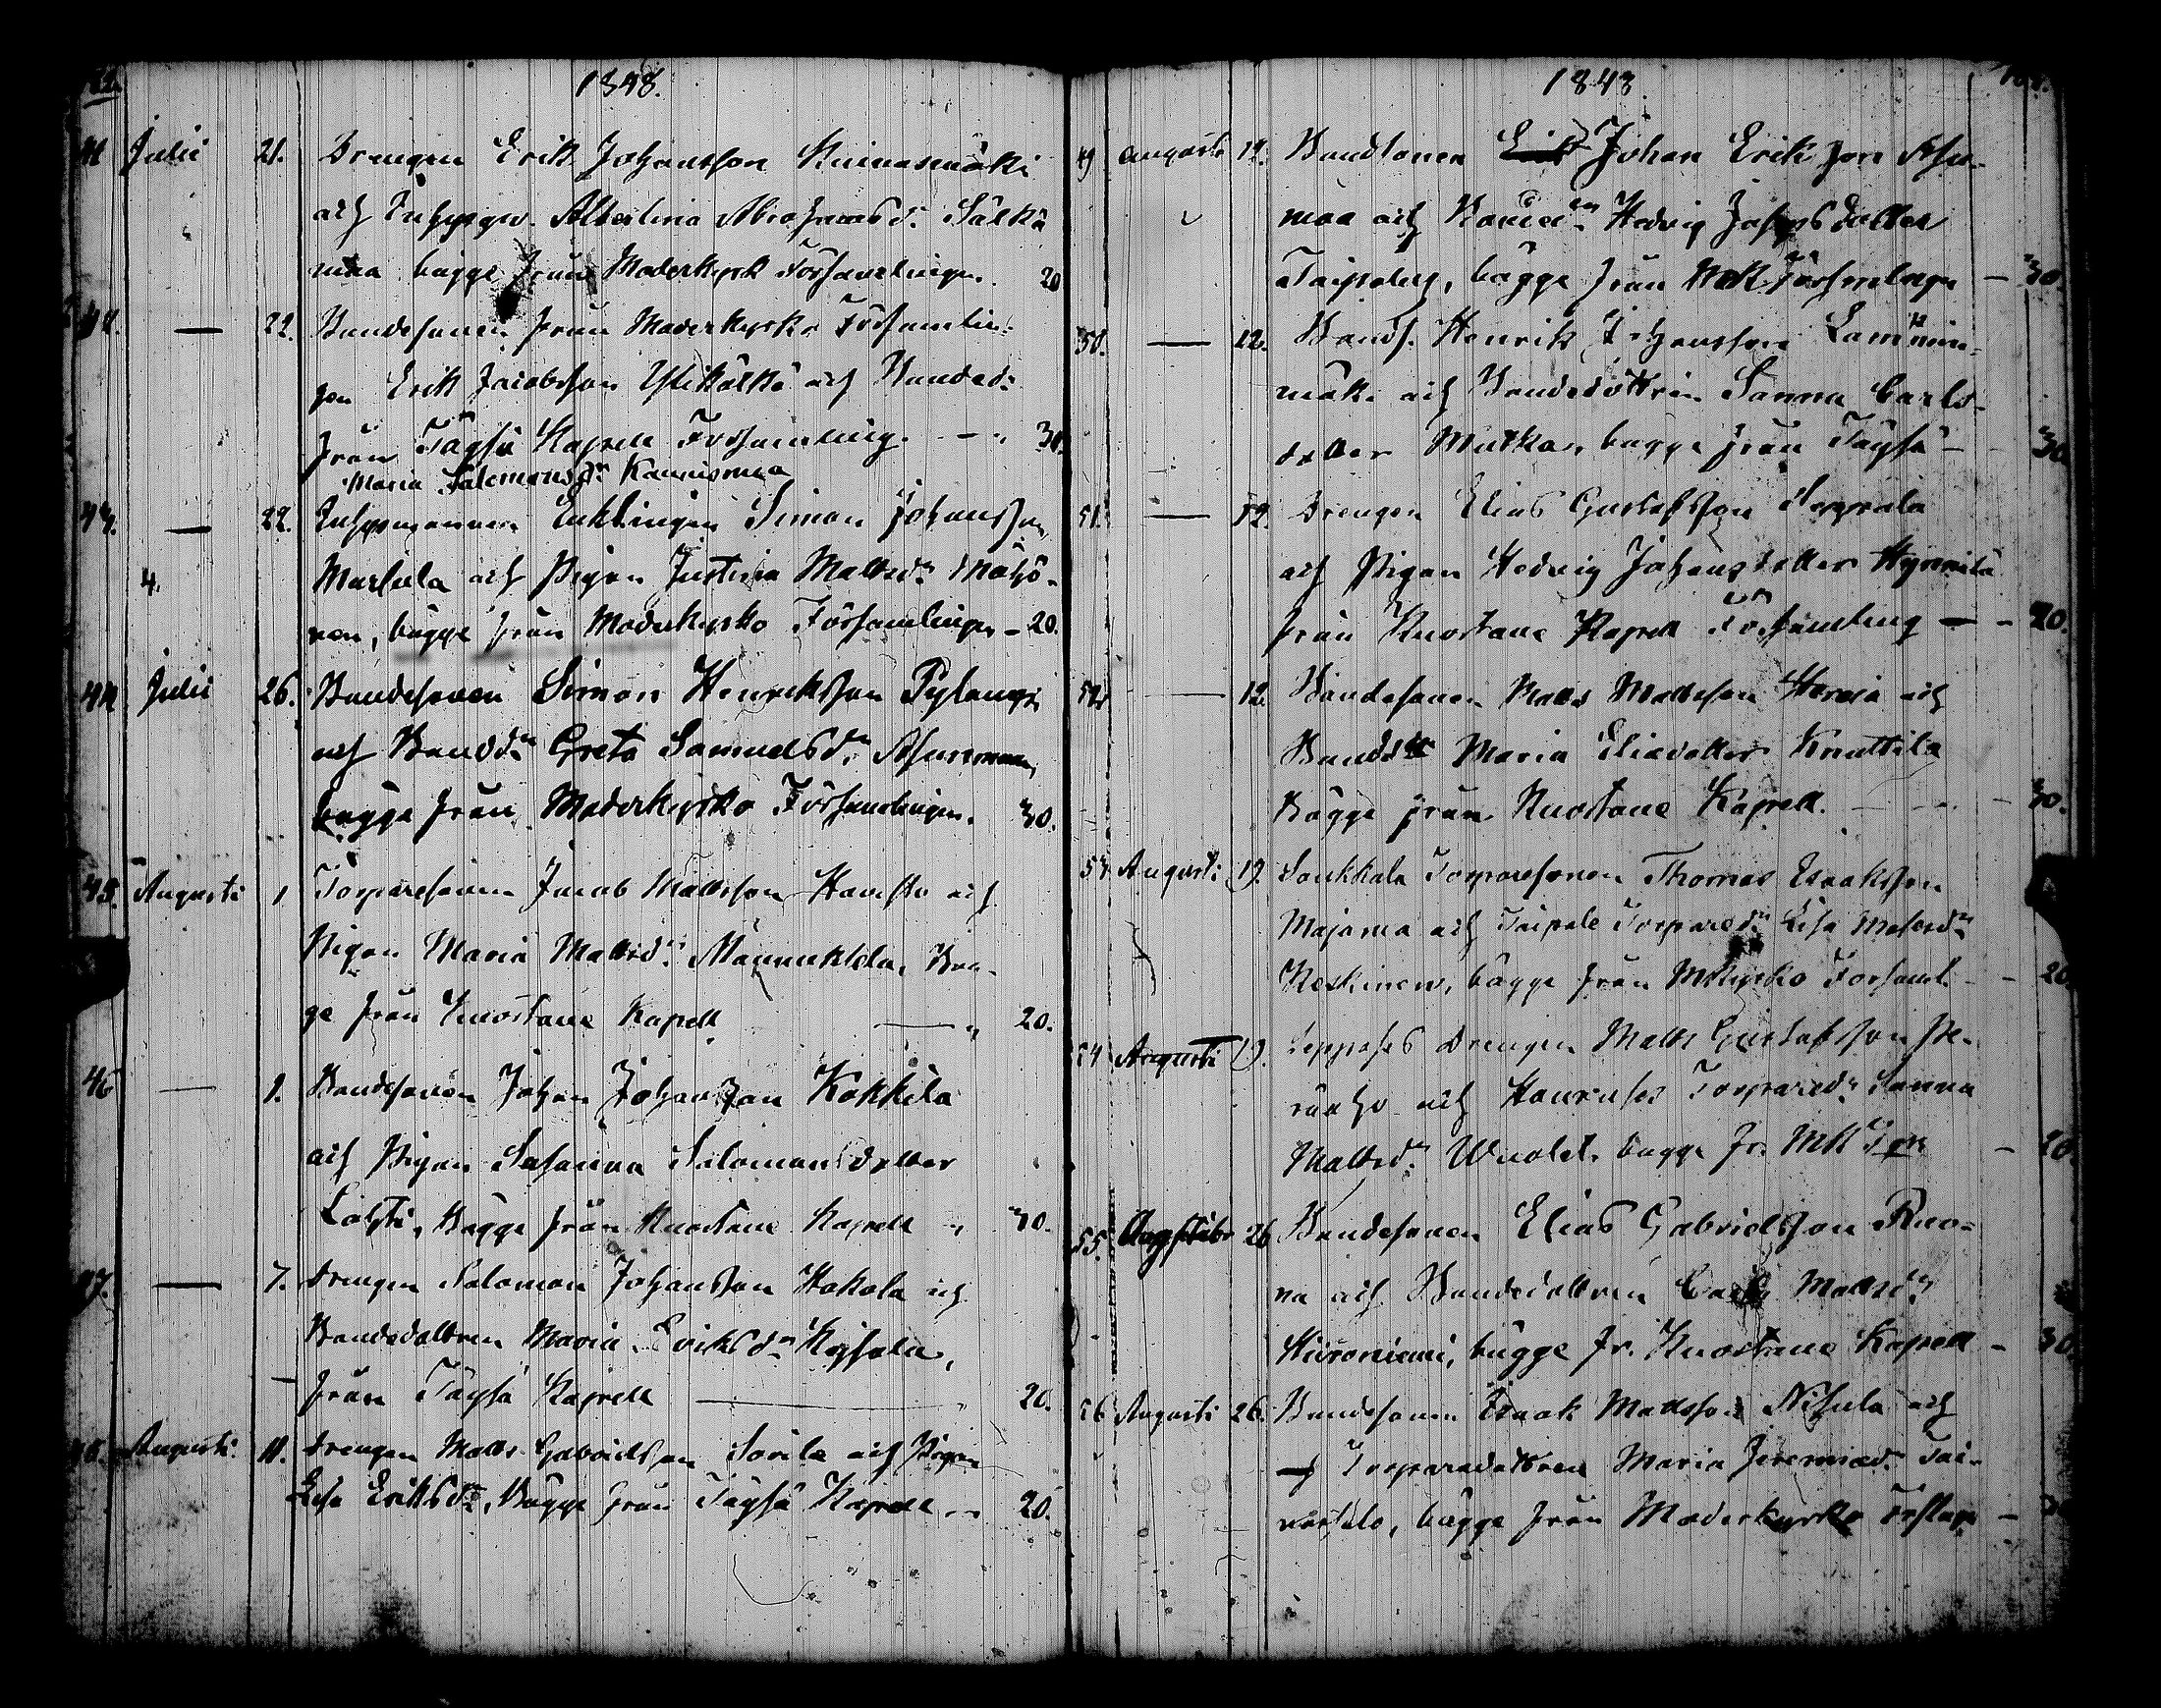 1848.
41 Julii 21. Drengen Erik Johansson Kuinasmäki
och Inhysew. Albertina Abrahamsd:r Sälkä
maa bägge från Moderkyrk Församlingen. 20
42. — 22. Bondesonen från Moderkyrko Församlin-
gen Erik Jacobsson Ylikälkä och Bonded:
från Töysä Kapell Församling. — " 30.
Maria Salomonsd:r Kaunismaa
43. — 22. Inhysmannen Enklingen Simon Johansson
4. Markula och Pigan Justina Mattsd:r Mähö-
nen, bägge från Moderkyrko Församlingen – 20.
44 Julii 26. Bondesonen Simon Henriksson
och Bondd:r Greta Samuelsd:r Asunmaa,
bägge från Moderkyrko Församlingen. 30.
45. Augusti 1 Torparesonen Jacob Mattsson Havisto och
Pigan Maria Mattsd:r Männikkola, Bäg-
ge från Kuortane Kapell — " 20.
46 — 1. Bondesonen Johan Johansson Kokkila
och Pigan Susanna Salomonsdotter
Lahti, Bägge från Kuortane Kapell " 30.
47. — 7. Drengen Salomon Johansson Hakola och
Bondedottren Maria Eriksd:r
från Töysä Kapell — 20.
48. Augusti 11. Drengen Matts Gabrielsson Sorila och Pigan
Lisa Eriksd:r, Bägge från Töysä Kapell — 20.
1848.
49 Augusti 12. Bondsonen Johan Eriksson Asu-
maa och Bonded:r Hedvig Johansdotter
Taipalus, bägge från MK Församlingen — 30.
50. — 12. Bonds. Henrik Johansson Lamminmäki
mäki och Bondedottren Sanna Carls-
dotter Mutka, bägge från Töysä — 30
51. — 12. Drengen Elias Gustafsson Seppälä
och Pigan Hedvig Johansdotter Hynnilä
från Kuortane Kapell Församling — – 20.
52. — 12. Bondesonen Matts Mattsson Harja och
Bondd:r Maria Eliedotter Knuttila
Bägge från Kuortane Kapell. — 30.
53. Augusti 19. Soukkala Torparesonen Thomas Isaksson
Majamaa och Taipale Torpared:r Lisa
Keskinen, bägge från Mkyrko Forsaml. — 20
54 Augusti 19. Drengen Matts Gustafsson Pe-
räaho och Torpared:r Sanna
Mattsd:r bägge fr. MK — 20
55. Augusti 26 Bondesonen Elias Gabrielsson Ruo-
na och Bondedottren Mattsd:r
Hironiemi, bägge fr. Kuortane Kapell – 30.
56 Augusti 26. Bondesonen Isaak Mattsson Nisula och
Torparedottren Maria Jeremiæd:r Tai-
bägge från Moderkyrko —